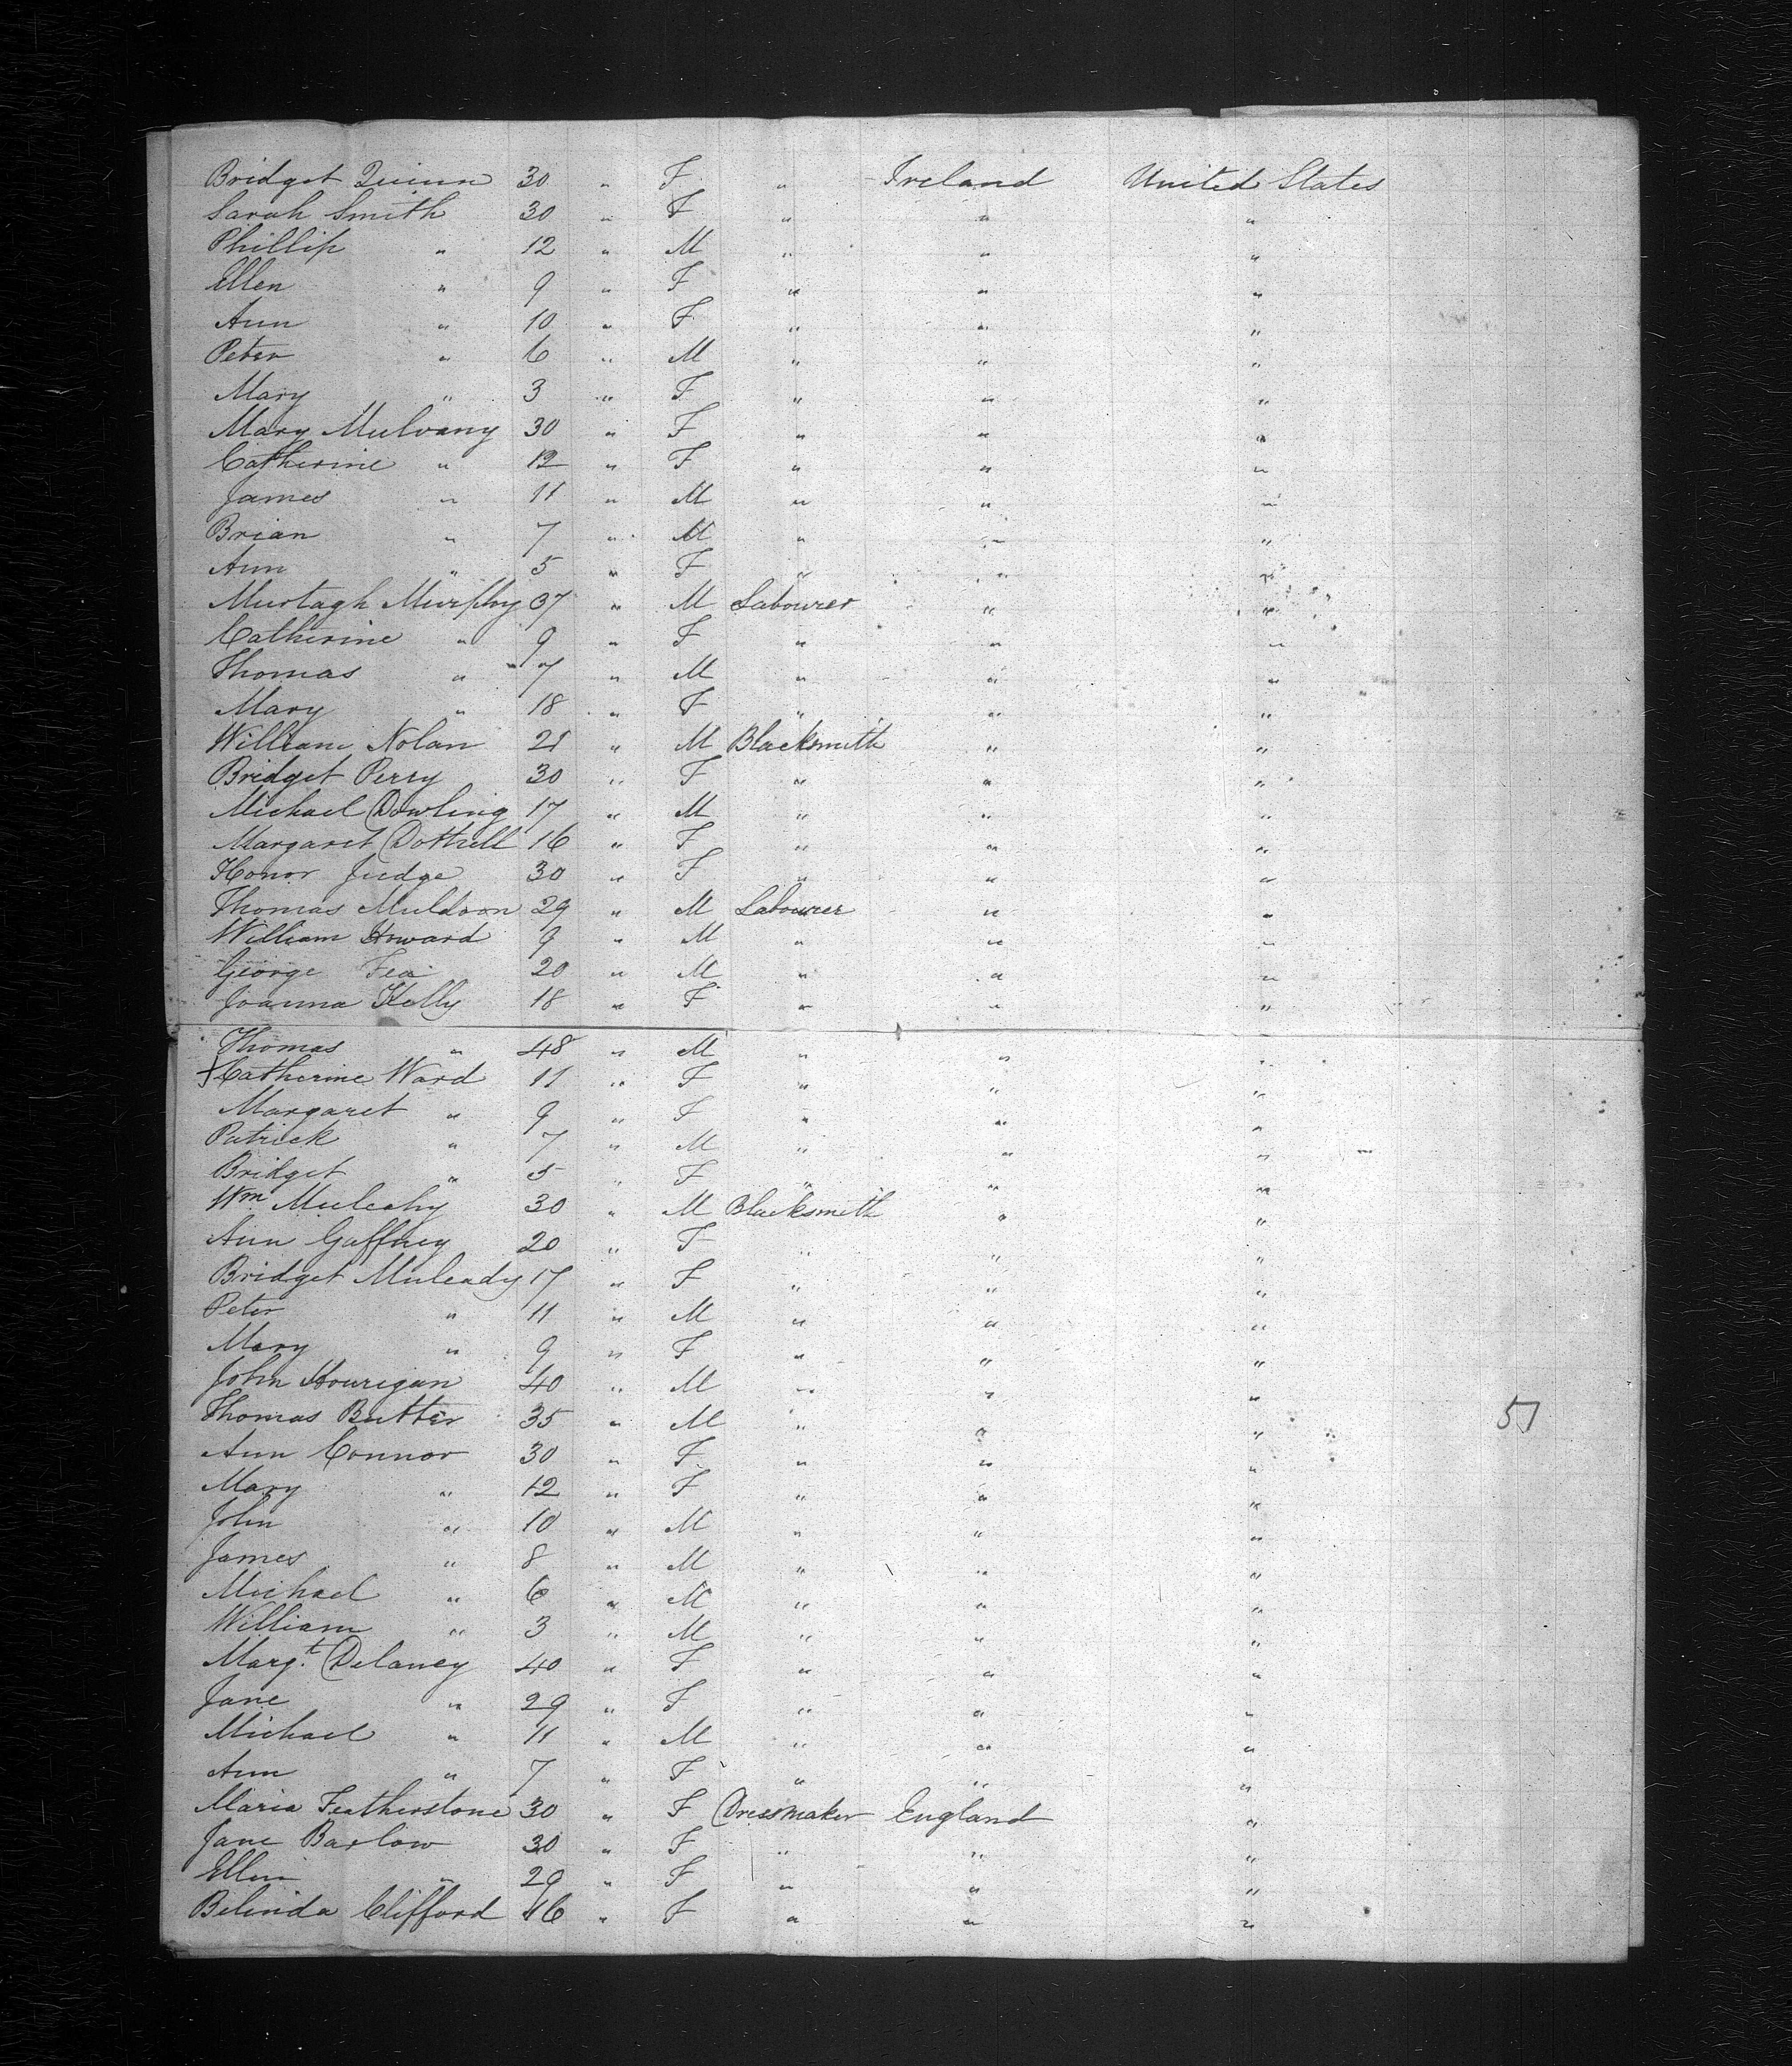 Bridget Quinn 30 " F " Ireland United States
Sarah Smith 30 " F " " "
Phillip " 12 " M " " "
Ellen " 9 " F " " "
Ann " 10 " F " " "
Peter " 6 " M " " "
Mary " 3 " F " " "
Mary Mulvany 30 " F " " "
Catherine " 12 " F " " "
James " 11 " M " " "
Brian " 7 " M " " "
Ann " 5 " F " " "
Murtagh Murphy 37 " M Labourer " "
Catherine " 9 " F " " "
Thomas " 7 " M " " "
Mary " 18 " F " " "
William Nolan 21 " M Blacksmith " "
Bridget Perry 30 " F " " "
Michael Dowling 17 " M " " "
Margaret Dottrell 16 " F " " "
Honor Judge 30 " F " " "
Thomas Muldoon 29 " M Labourer " "
William Howard 9 " M " " "
George Fea 20 " M " " "
Joanna Kelly 18 " F " " "
Thomas " 48 " M " " "
+Catherine Ward 11 " F " " "
Margaret " 9 " F " " "
Patrick " 7 " M " " "
Bridget " 5 " F " " "
Wm. Mulcahy 30 " M Blacksmith " "
Ann Gaffney 20 " F " " "
Bridget Muleady 17 " F " " "
Peter " 11 " M " " "
Mary " 9 " F " " "
John Hourigan 40 " M " " "
Thomas Butter 35 " M " " " 51
Ann Connor 30 " F " " "
Mary " 12 " F " " "
John " 10 " M " " "
James " 8 " M " " "
Michael " 6 " M " " "
William " 3 " M " " "
Margt. Delaney 40 " F " " "
Jane " 29 " F " " "
Michael " 11 " M " " "
Ann " 7 " F " " "
Maria Featherstone 30 " F Dressmaker England "
Jane Barlow 30 " F " " "
Ellen " 29 " F " " "
Belinda Clifford 46 " F " " "